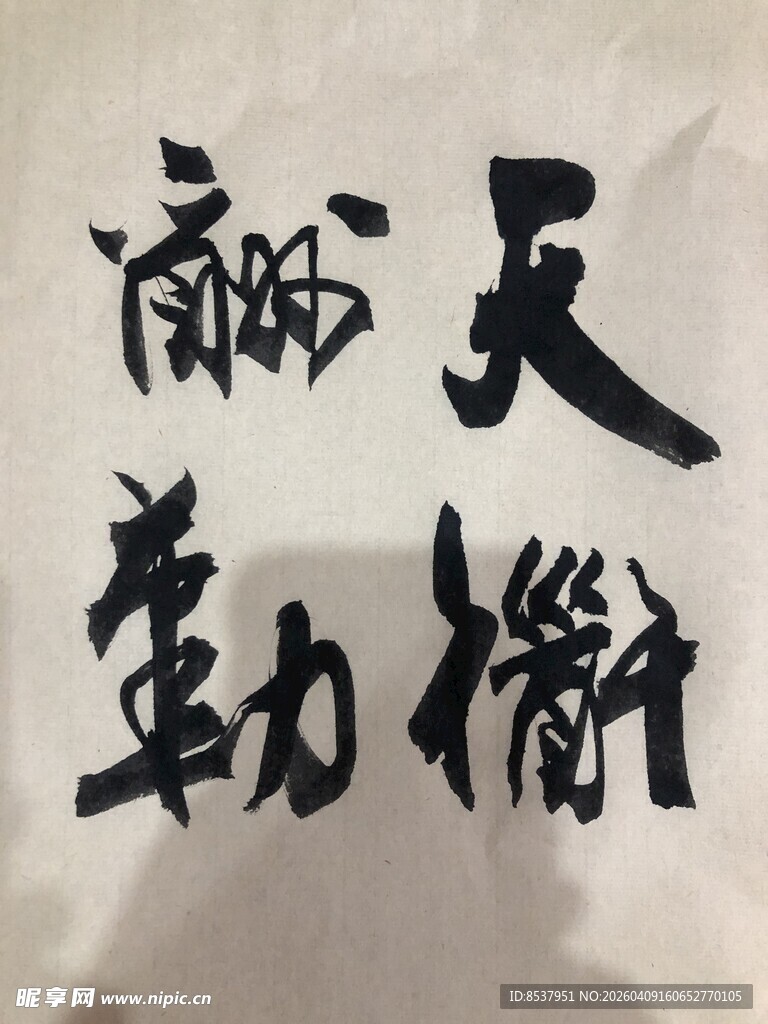 天衟
酬勤
昵享网 www.nipic.cn
ID:8537951 NO:20260409160652770105